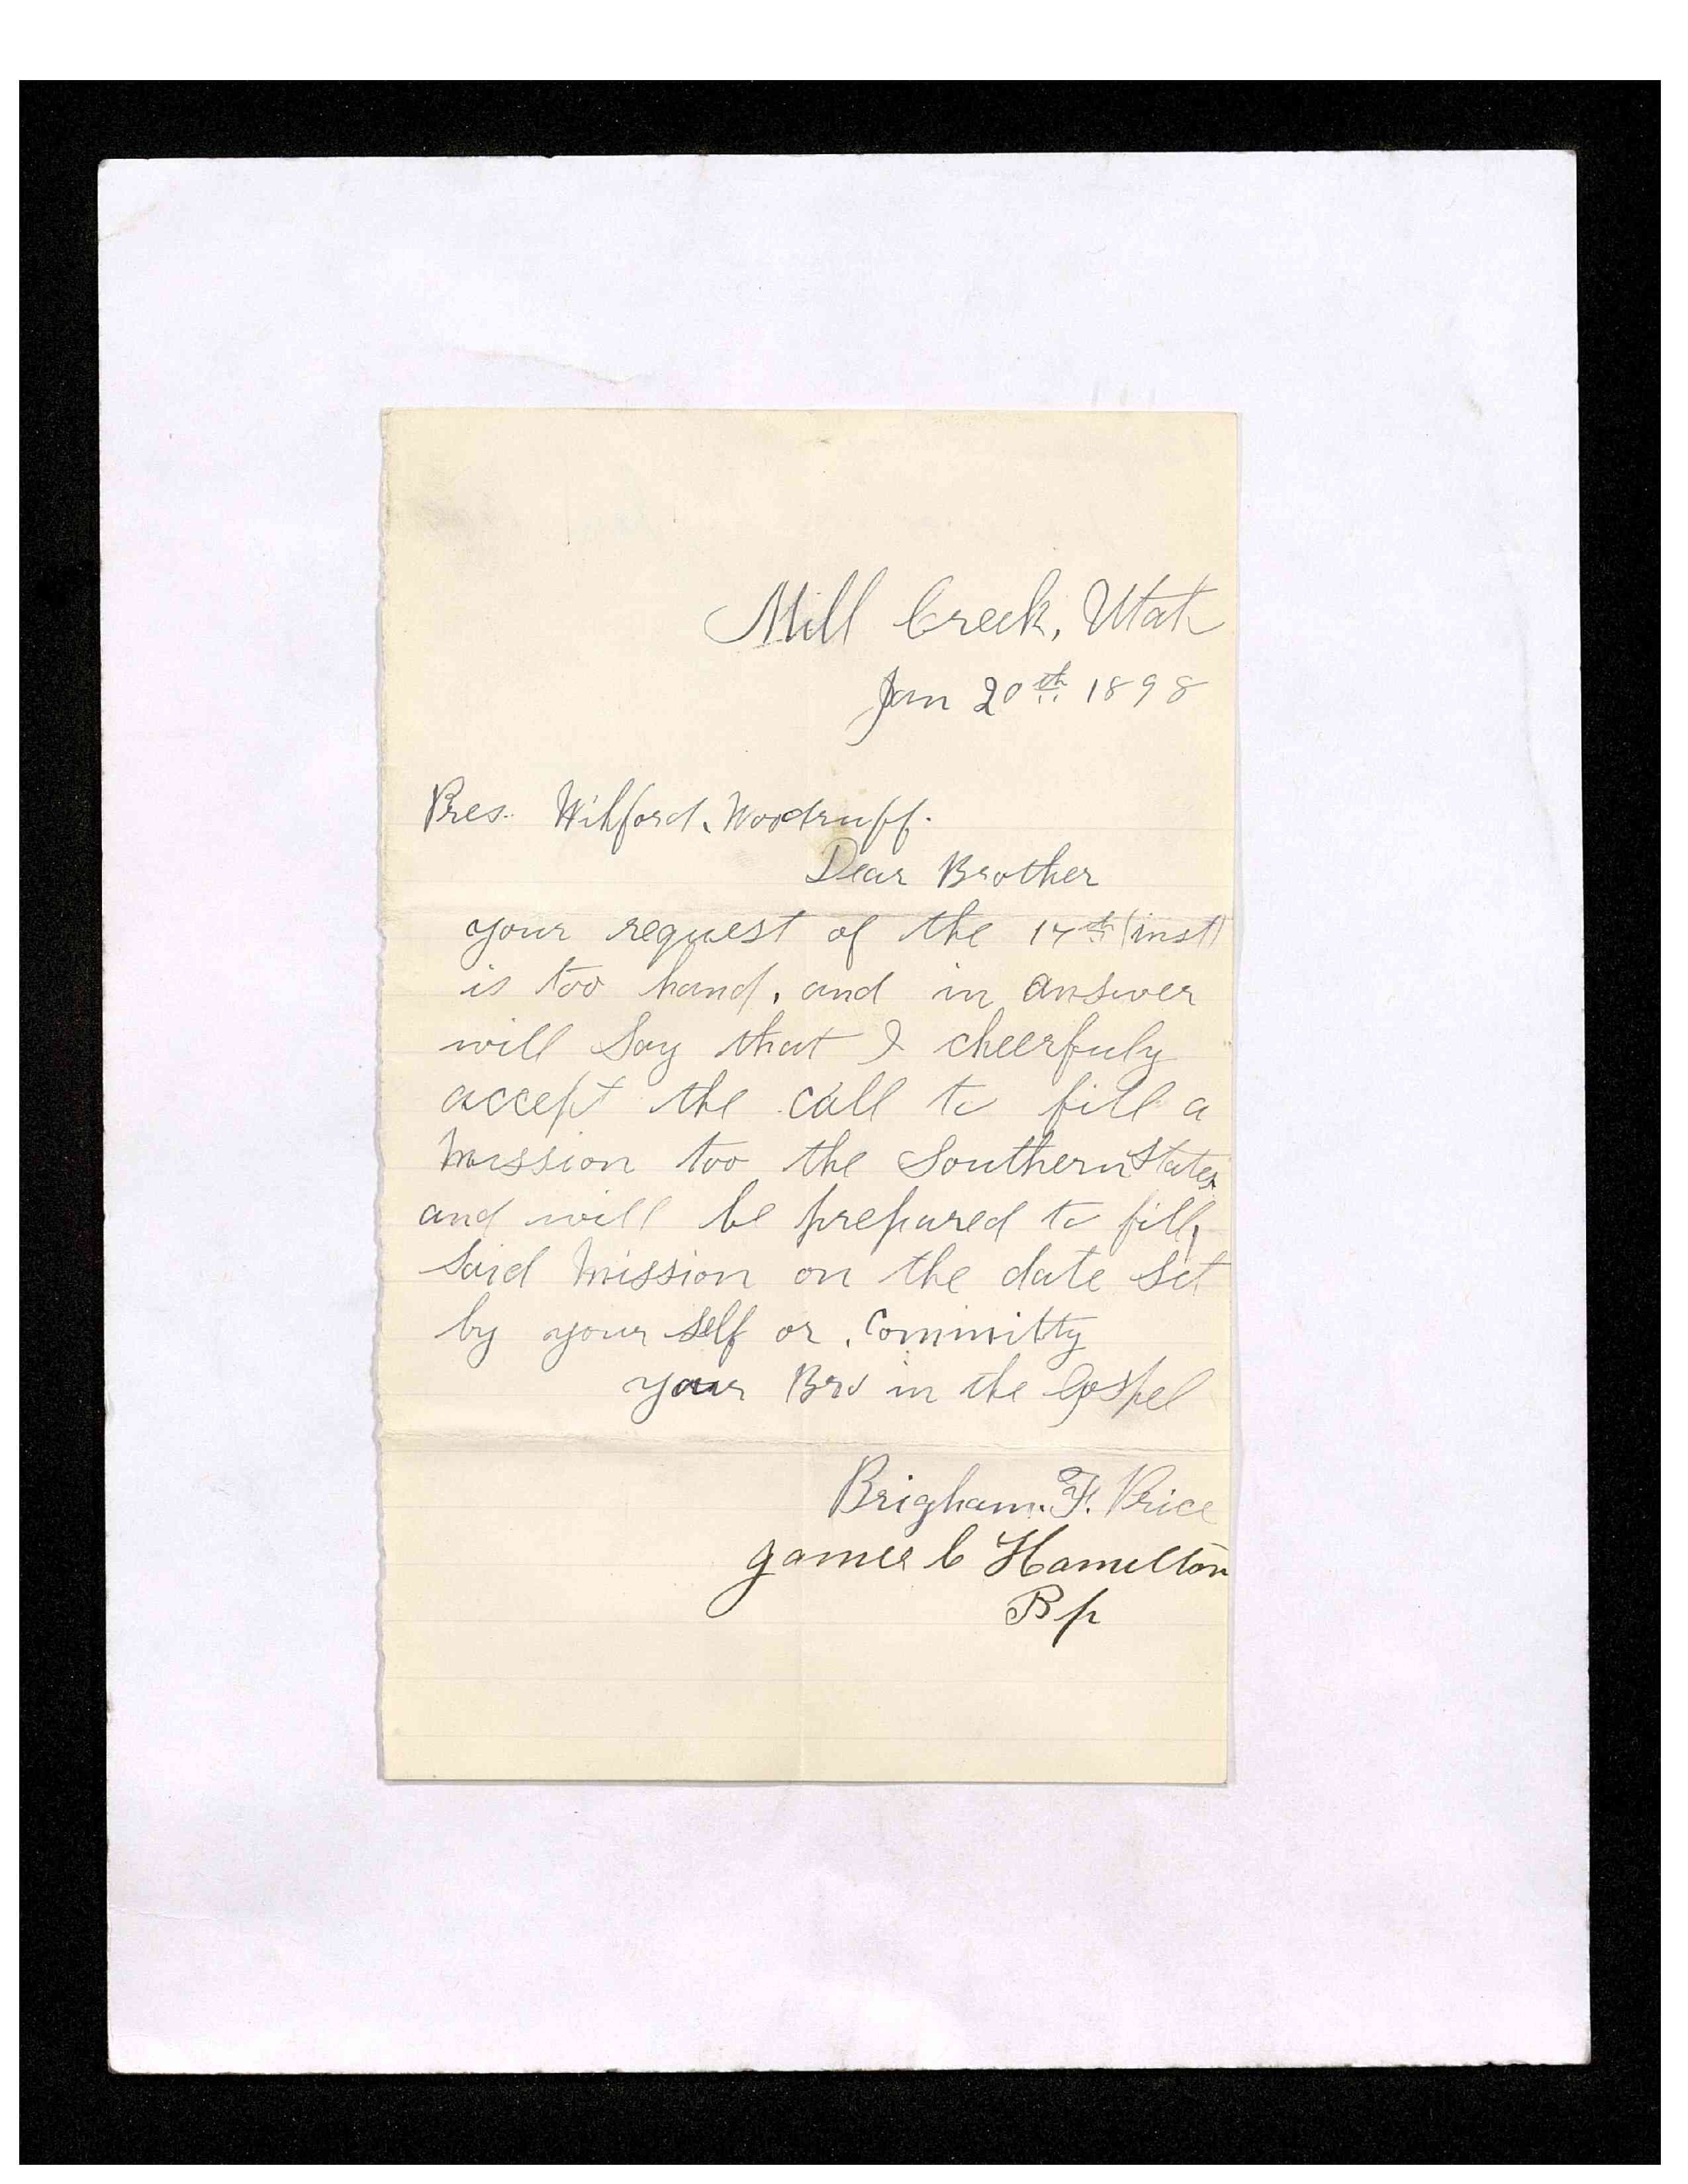 Mill Creek, Utah
Jan 20th 1898
Pres. Wilford. Woodruff.
Dear Brother
your request of the 17th (inst)
is too hand, and in answer
will Say that I cheerfuly
accept the call to fill a
Mission too the Southern States
and will be prepared to fill,
Said Mission on the date Set
by your self or. Committy
your Bro in the Gospel
Brigham. F. Price
James C Hamilton
Bp